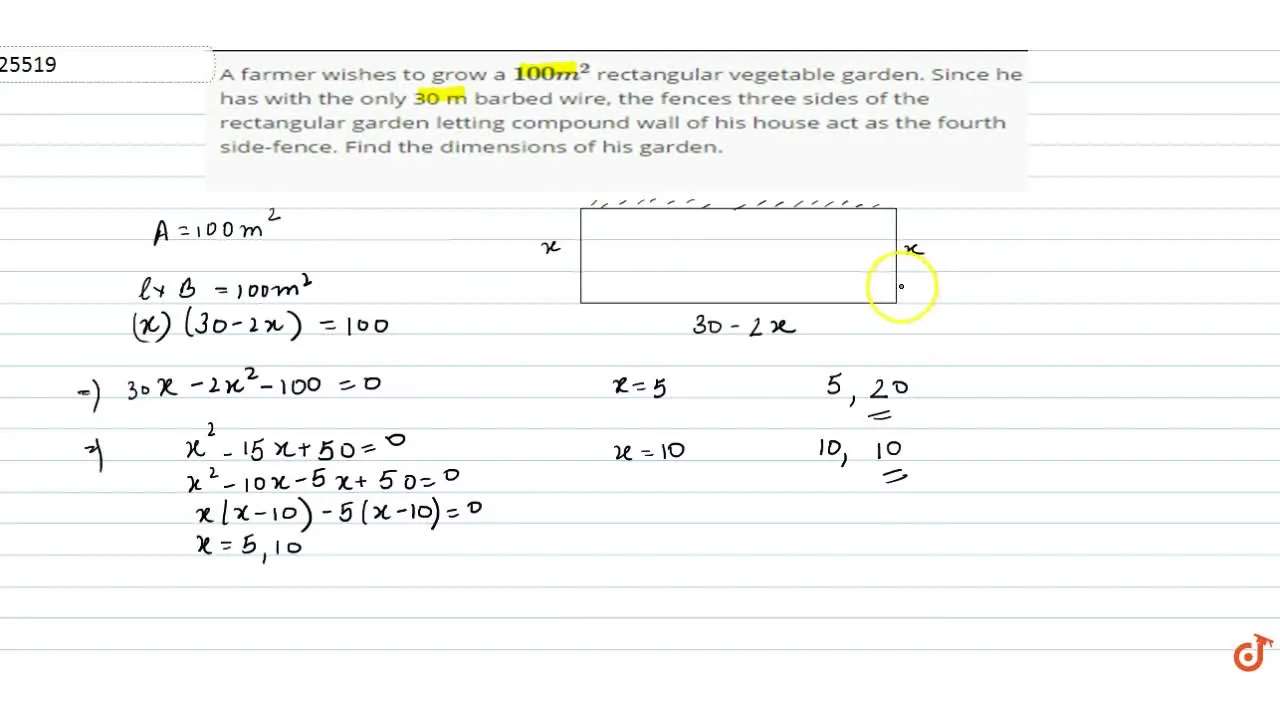 25519
A farmer wishes to grow a 100m² rectangular vegetable garden. Since he
has with the only 30 m barbed wire, the fences three sides of the
rectangular garden letting compound wall of his house act as the fourth
side-fence. Find the dimensions of his garden.
A = 100m²
x
x
l × B = 100m²
(x) (30 - 2x) = 100
30 - 2x
=) 30x - 2x² - 100 = 0
x = 5
5, 20
=) x² - 15x + 50 = 0
x = 10
10, 10
x² - 10x - 5x + 50 = 0
x(x - 10) - 5(x - 10) = 0
x = 5, 10